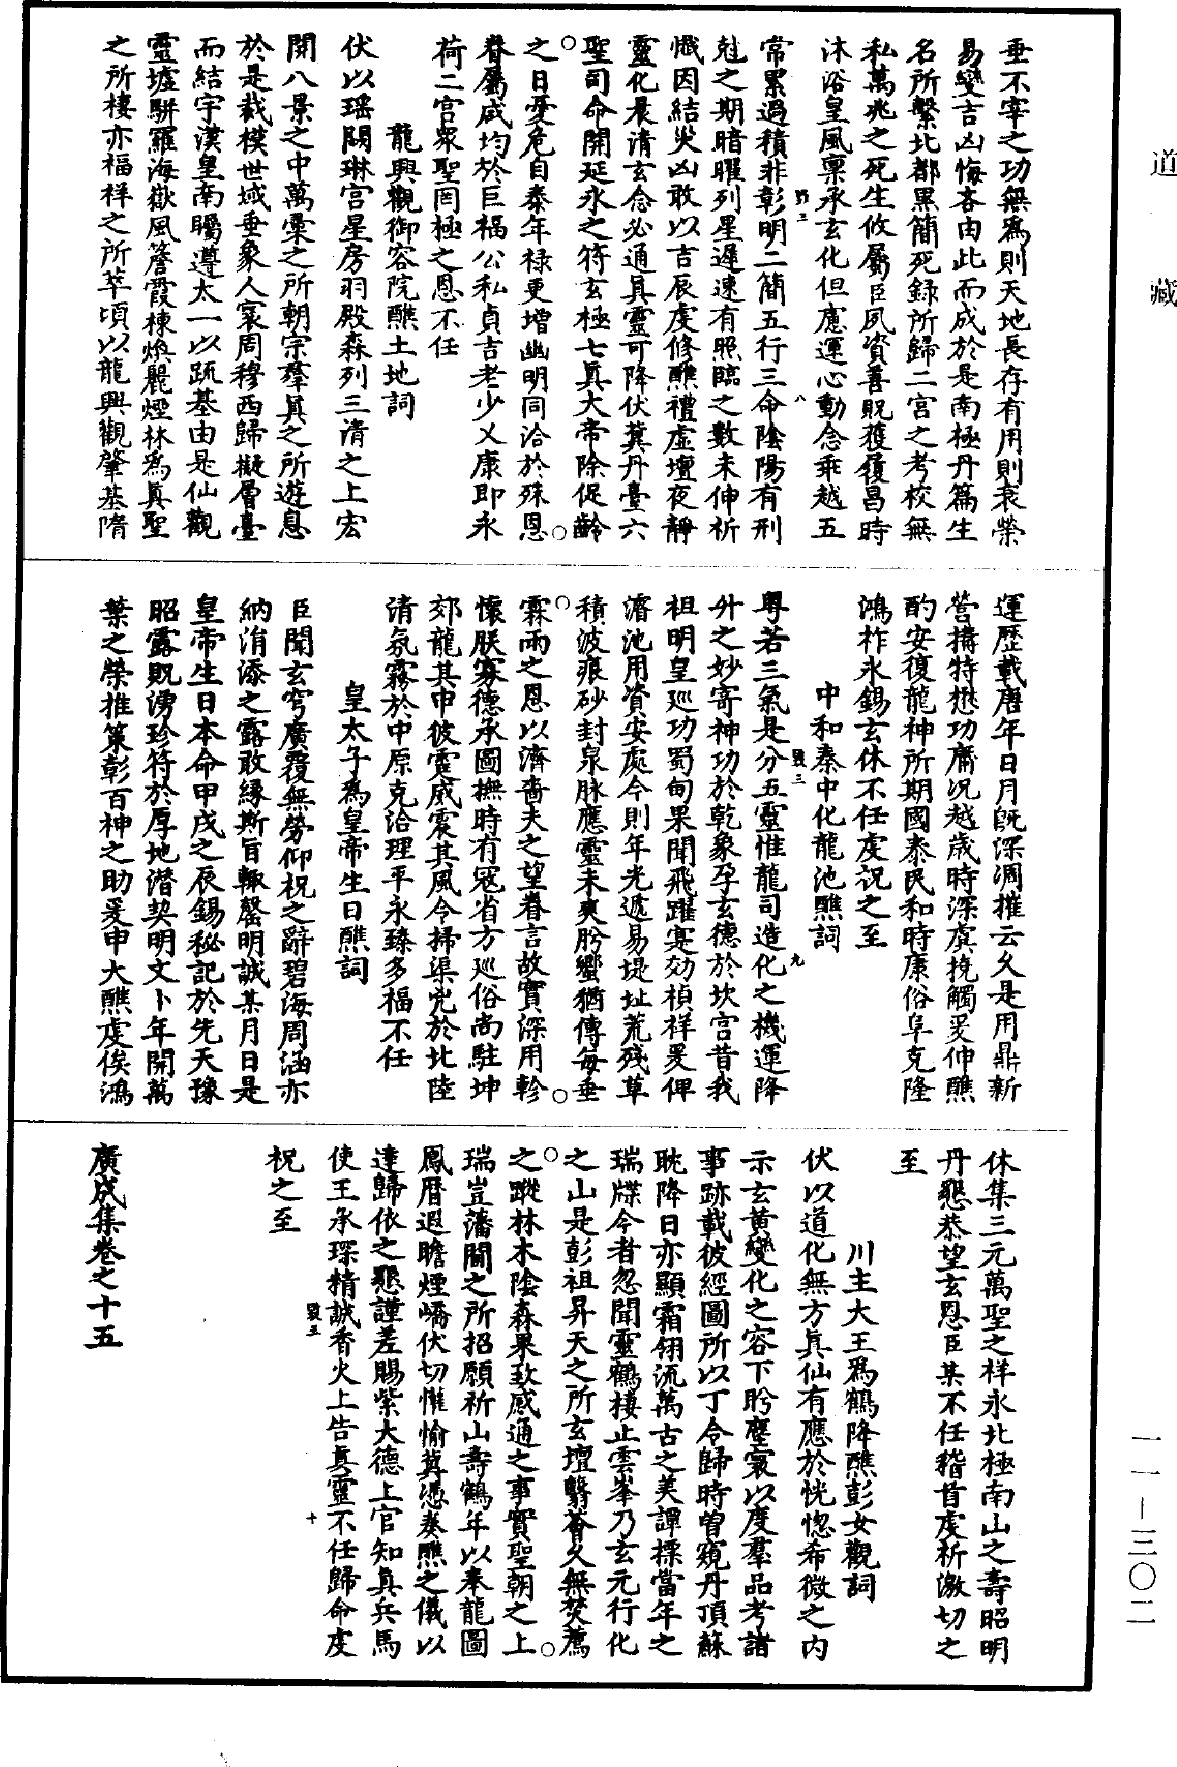 道藏
垂不宰之功無為則天地長存有用則衰榮
易變吉凶悔吝由此而成於是南極丹篇生
名所繫北都黑簡死錄所歸二宮之考校無
私萬兆之死生攸屬臣夙資善貺獲履昌時
沐浴皇風稟承玄化但慮運心動念乖越五
常累過積非彰明二簡五行三命陰陽有刑
尅之期暗曜列星遲速有照臨之數未伸祈
懺因結災凶敢以吉辰虔修醮禮虛壇夜靜
靈化晨清玄念必通真靈可降伏冀丹臺六
聖司命開延永之符玄極七真大帝除促齡
之日憂危自泰年祿更增幽明同洽於殊恩
眷屬咸均於巨福公私貞吉老少乂康即永
荷二宮眾聖罔極之恩不任
龍興觀御容院醮土地詞
伏以瑤闕琳宮星房羽殿森列三清之上宏
開八景之中萬靈之所朝宗羣真之所遊息
於是裁模世域垂象人寰周穆西歸擬層臺
而結宇漢皇南矚遵太一以疏基由是仙觀
靈墟駢羅海嶽風簷霞棟煥麗煙林為真聖
之所棲亦福祥之所萃頃以龍興觀肇基隋
運歷載唐年日月既深凋摧云久是用鼎新
營搆特懋功庸況越歲時深虞撓觸爰伸醮
酌安復龍神所期國泰民和時康俗阜克隆
鴻祚永錫玄休不任虔祝之至
中和秦中化龍池醮詞
粵若三氣是分五靈惟龍司造化之機運降
升之妙寄神功於乾象孕玄德於坎宮昔我
祖明皇巡功蜀甸果聞飛躍寔効禎祥爰俾
濬池用資安處今則年光遞易堤址荒殘草
積波痕砂封泉脉應靈未爽肸蠁猶傳每垂
霖雨之恩以濟嗇夫之望眷言故實深用軫
懷朕寡德承圖撫時有寇省方巡俗尚駐坤
郊龍其申彼靈威震其風令掃渠兇於北陸
清氛霧於中原克洽理平永臻多福不任
皇太子為皇帝生日醮詞
臣聞玄穹廣覆無勞仰祝之辭碧海周涵亦
納涓滴之露敢緣斯旨輒罄明誠某月日是
皇帝生日本命甲戌之辰錫秘記於先天豫
昭露貺湧珍符於厚地潛契明文卜年開萬
葉之榮推策彰百神之助爰申大醮虔俟鴻
休集三元萬聖之祥永北極南山之壽昭明
丹懇恭望玄恩臣某不任稽首虔祈激切之
至
川主大王為鶴降醮彭女觀詞
伏以道化無方真仙有應於恍惚希微之內
示玄黃變化之容下盻塵寰以度羣品考諸
事跡載彼經圖所以丁令歸時曾窺丹頂蘇
耽降日亦顯霜翎流萬古之美譚標當年之
瑞牒今者忽聞靈鶴棲止雲峯乃玄元行化
之山是彭祖昇天之所玄壇翳薈久無焚薦
之蹤林木陰森果致感通之事實聖朝之上
瑞豈藩閫之所招願祈山壽鶴年以奉龍圖
鳳曆遐瞻煙嶠伏切懽愉冀憑奏醮之儀以
達歸依之懇謹差賜紫大德上官知真兵馬
使王承琛精誠香火上告真靈不任歸命虔
祝之至
廣成集卷之十五
一一—三〇二